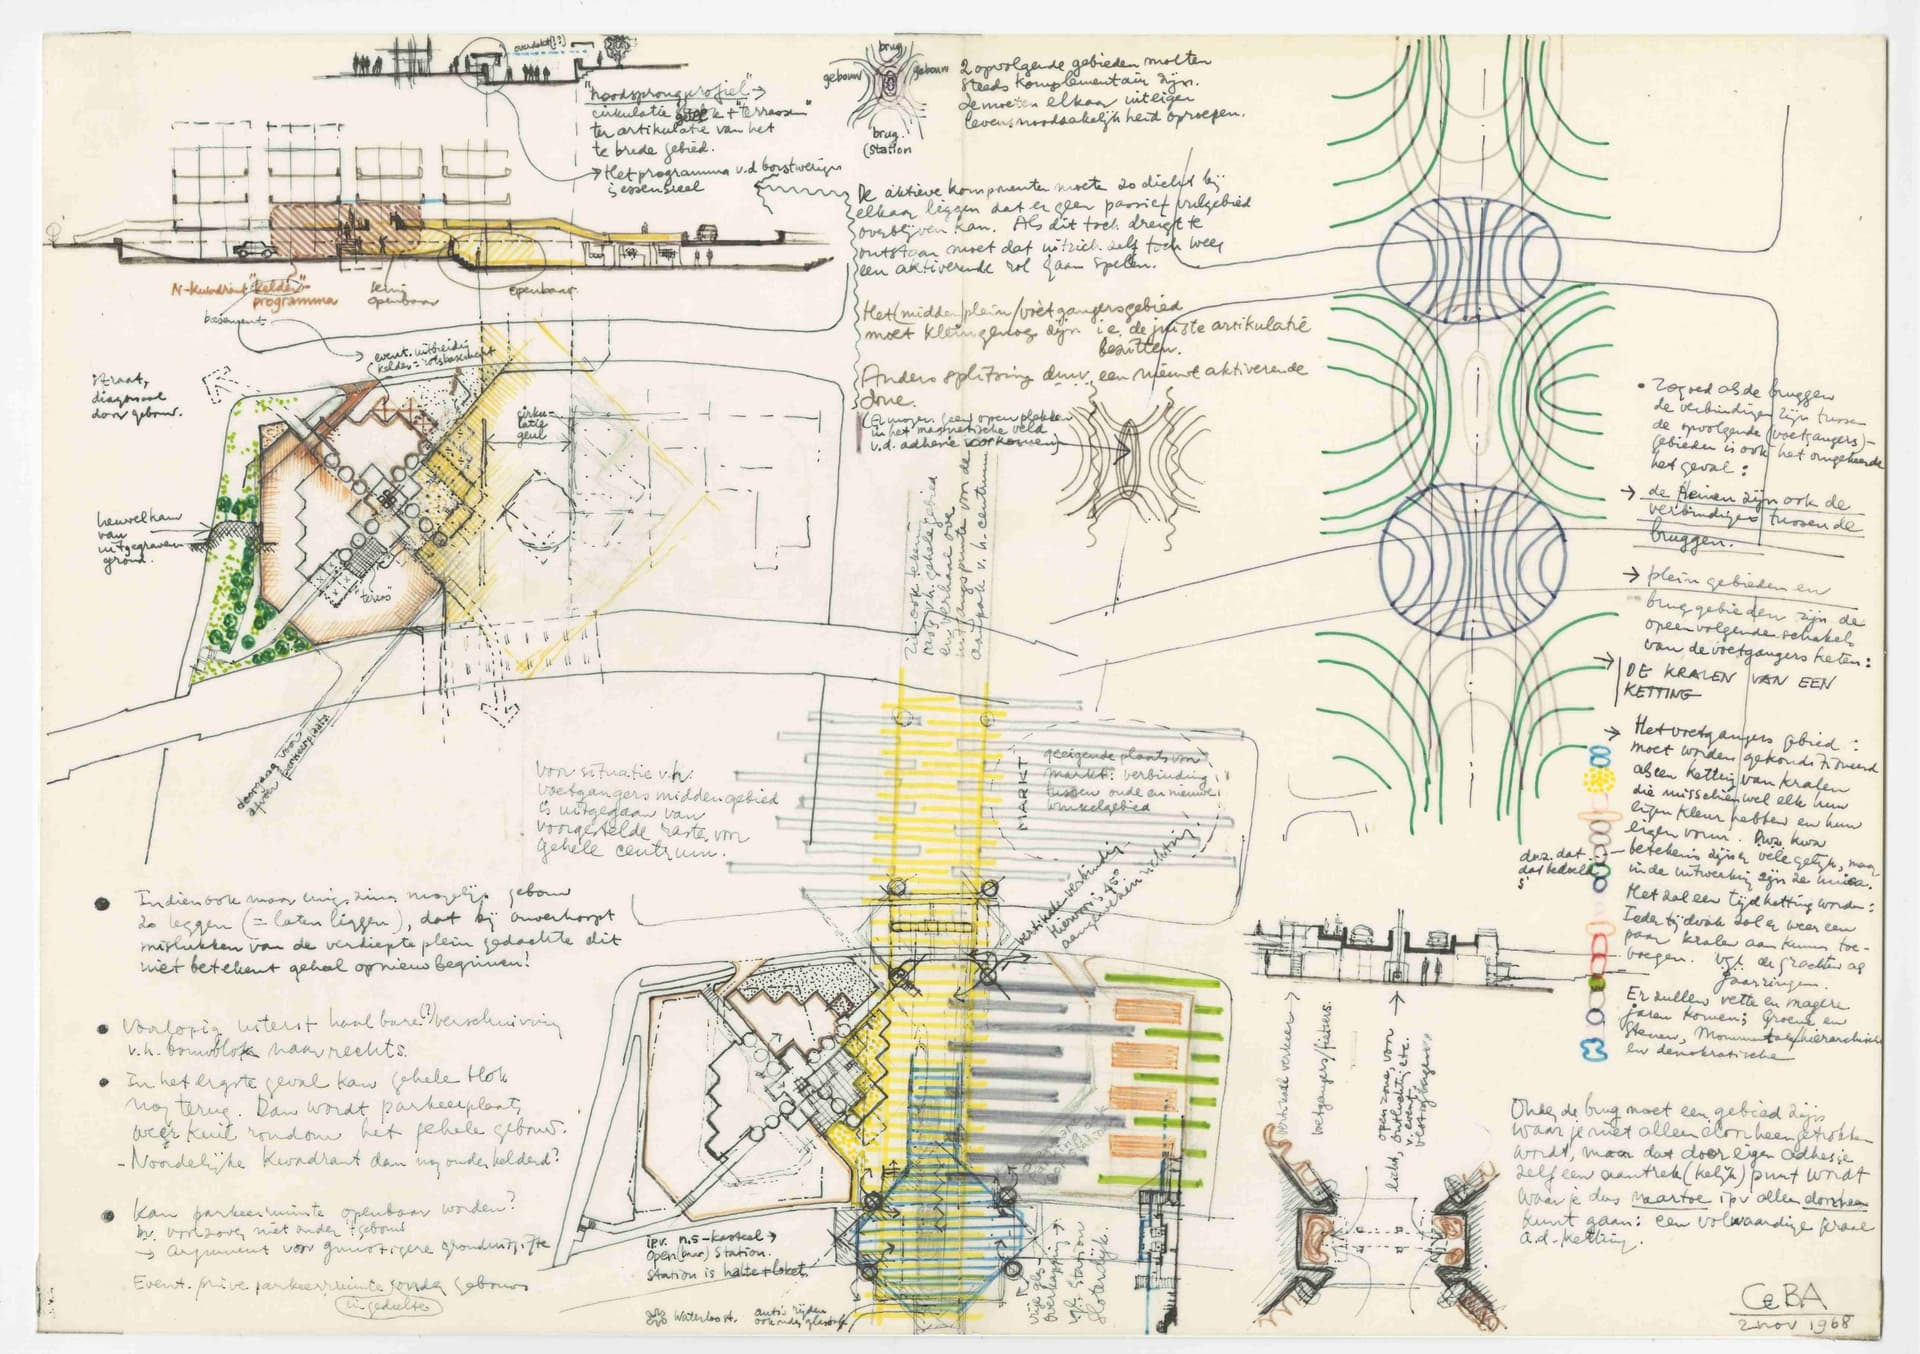 overdekt (??)
"noodsprongprofiel" →
cirkulatie + "terrassen"
ter artikulatie van het
te brede gebied.
→ Het programma v.d borstweringen
is essensieel
brug
gebouw
gebouw
brug
(station
2 opvolgende gebieden moeten
steeds komplementair zijn.
ze moeten elkaar uit eigen
levensnoodzakelijkheid oproepen.
De aktieve komponenten moeten zo dicht bij
elkaar liggen dat er geen passief vulgebied
overblijven kan. Als dit toch dreigt te
ontstaan moet dat uit zich zelf toch weer
een aktiverende rol gaan spelen.
Het (midden) plein/voetgangersgebied
moet klein genoeg zijn i.e. de juiste artikulatie
bezitten.
Anders splitsing door een nieuwe aktiverende
zone.
(Er mogen geen open plekken
in het magnetische veld
v.d. adhesie voorkomen)
N-kwadrant "kelder"
programma
semi
openbaar
openbaar
basement
event. uitbreiding
kelder = rotsbasement
straat,
diagonaal
door gebouw.
cirku-
latie
geul
heuvelkam
van
uitgegraven
grond.
"terras"
doorgang voor
parkeerplaats
zie ook tekening
gehele gebied
en verhaal over
uitgangspunten van de
aanpak v. h. centrum
Voor situatie v.h.
voetgangers middengebied
is uitgegaan van
voorgestelde raster voor
gehele centrum.
MARKT
geeigende plaats voor
markt: verbinding
tussen oude en nieuwe
winkelgebied
vertikale verbinding
hiervoor is 45°
aangewezen richting!
• Indien ook maar enigszins mogelijk gebouw
zo leggen (= laten liggen), dat bij onverhoopt
mislukken van de verdiepte plein gedachte dit
niet betekent geheel opnieuw beginnen!
• Voorlopig uiterst haalbare (?) verschuiving
v.h. bouwblok naar rechts.
• In het ergste geval kan gehele blok
nog terug. Dan wordt parkeerplaats
weer kuil rondom het gehele gebouw.
- Noordelijke kwadrant dan nog onderkelderd?
• Kan parkeerruimte openbaar worden?
bv. voorzover niet onder gebouw
→ argument voor gunstigere grond
Event. privé parkeerruimte onder gebouw
ipv. n.s-kasteel →
open(baar) station.
station is halte + loket.
Waterloost.
auto's rijden
ook onder
overlapping →
vgl. station
Sloterdijk.
• Zo goed als de bruggen
de verbindingen zijn tussen
de opvolgende (voetgangers)-
gebieden is ook het omgekeerde
het geval:
→ de pleinen zijn ook de
verbindingen tussen de
bruggen.
→ plein gebieden en
bruggebieden zijn de
opeenvolgende schakels
van de voetgangers keten:
→ DE KRALEN VAN EEN
KETTING
→ Het voetgangers gebied:
moet worden gekonditioneerd
als een ketting van kralen
die misschien wel elk hun
eigen kleur hebben en hun
eigen vorm. Qwa
betekenis zijn er vele gelijk, maar
in de uitwerking zijn ze uniek.
Het zal een tijdketting worden:
Ieder tijdvak zal er weer een
paar kralen aan kunnen toe-
voegen. vgl. de grachten als
jaarringen.
Er zullen vette en magere
jaren komen; Groene en
Stenen, Monumentale/hierarchische
en demokratische
vertikaal verkeer
voetgangers/fietsers.
open zone, voor
licht, ontluchting etc.
v. event.
Onder de brug moet een gebied zijn
waar je niet alleen doorheen getrokken
wordt, maar dat door eigen adhesie
zelf een aantrek(kelijk) punt wordt
waar je dus naartoe ipv alleen doorheen
kunt gaan: een volwaardige kraal
a.d. ketting.
CeBA
2 nov 1968